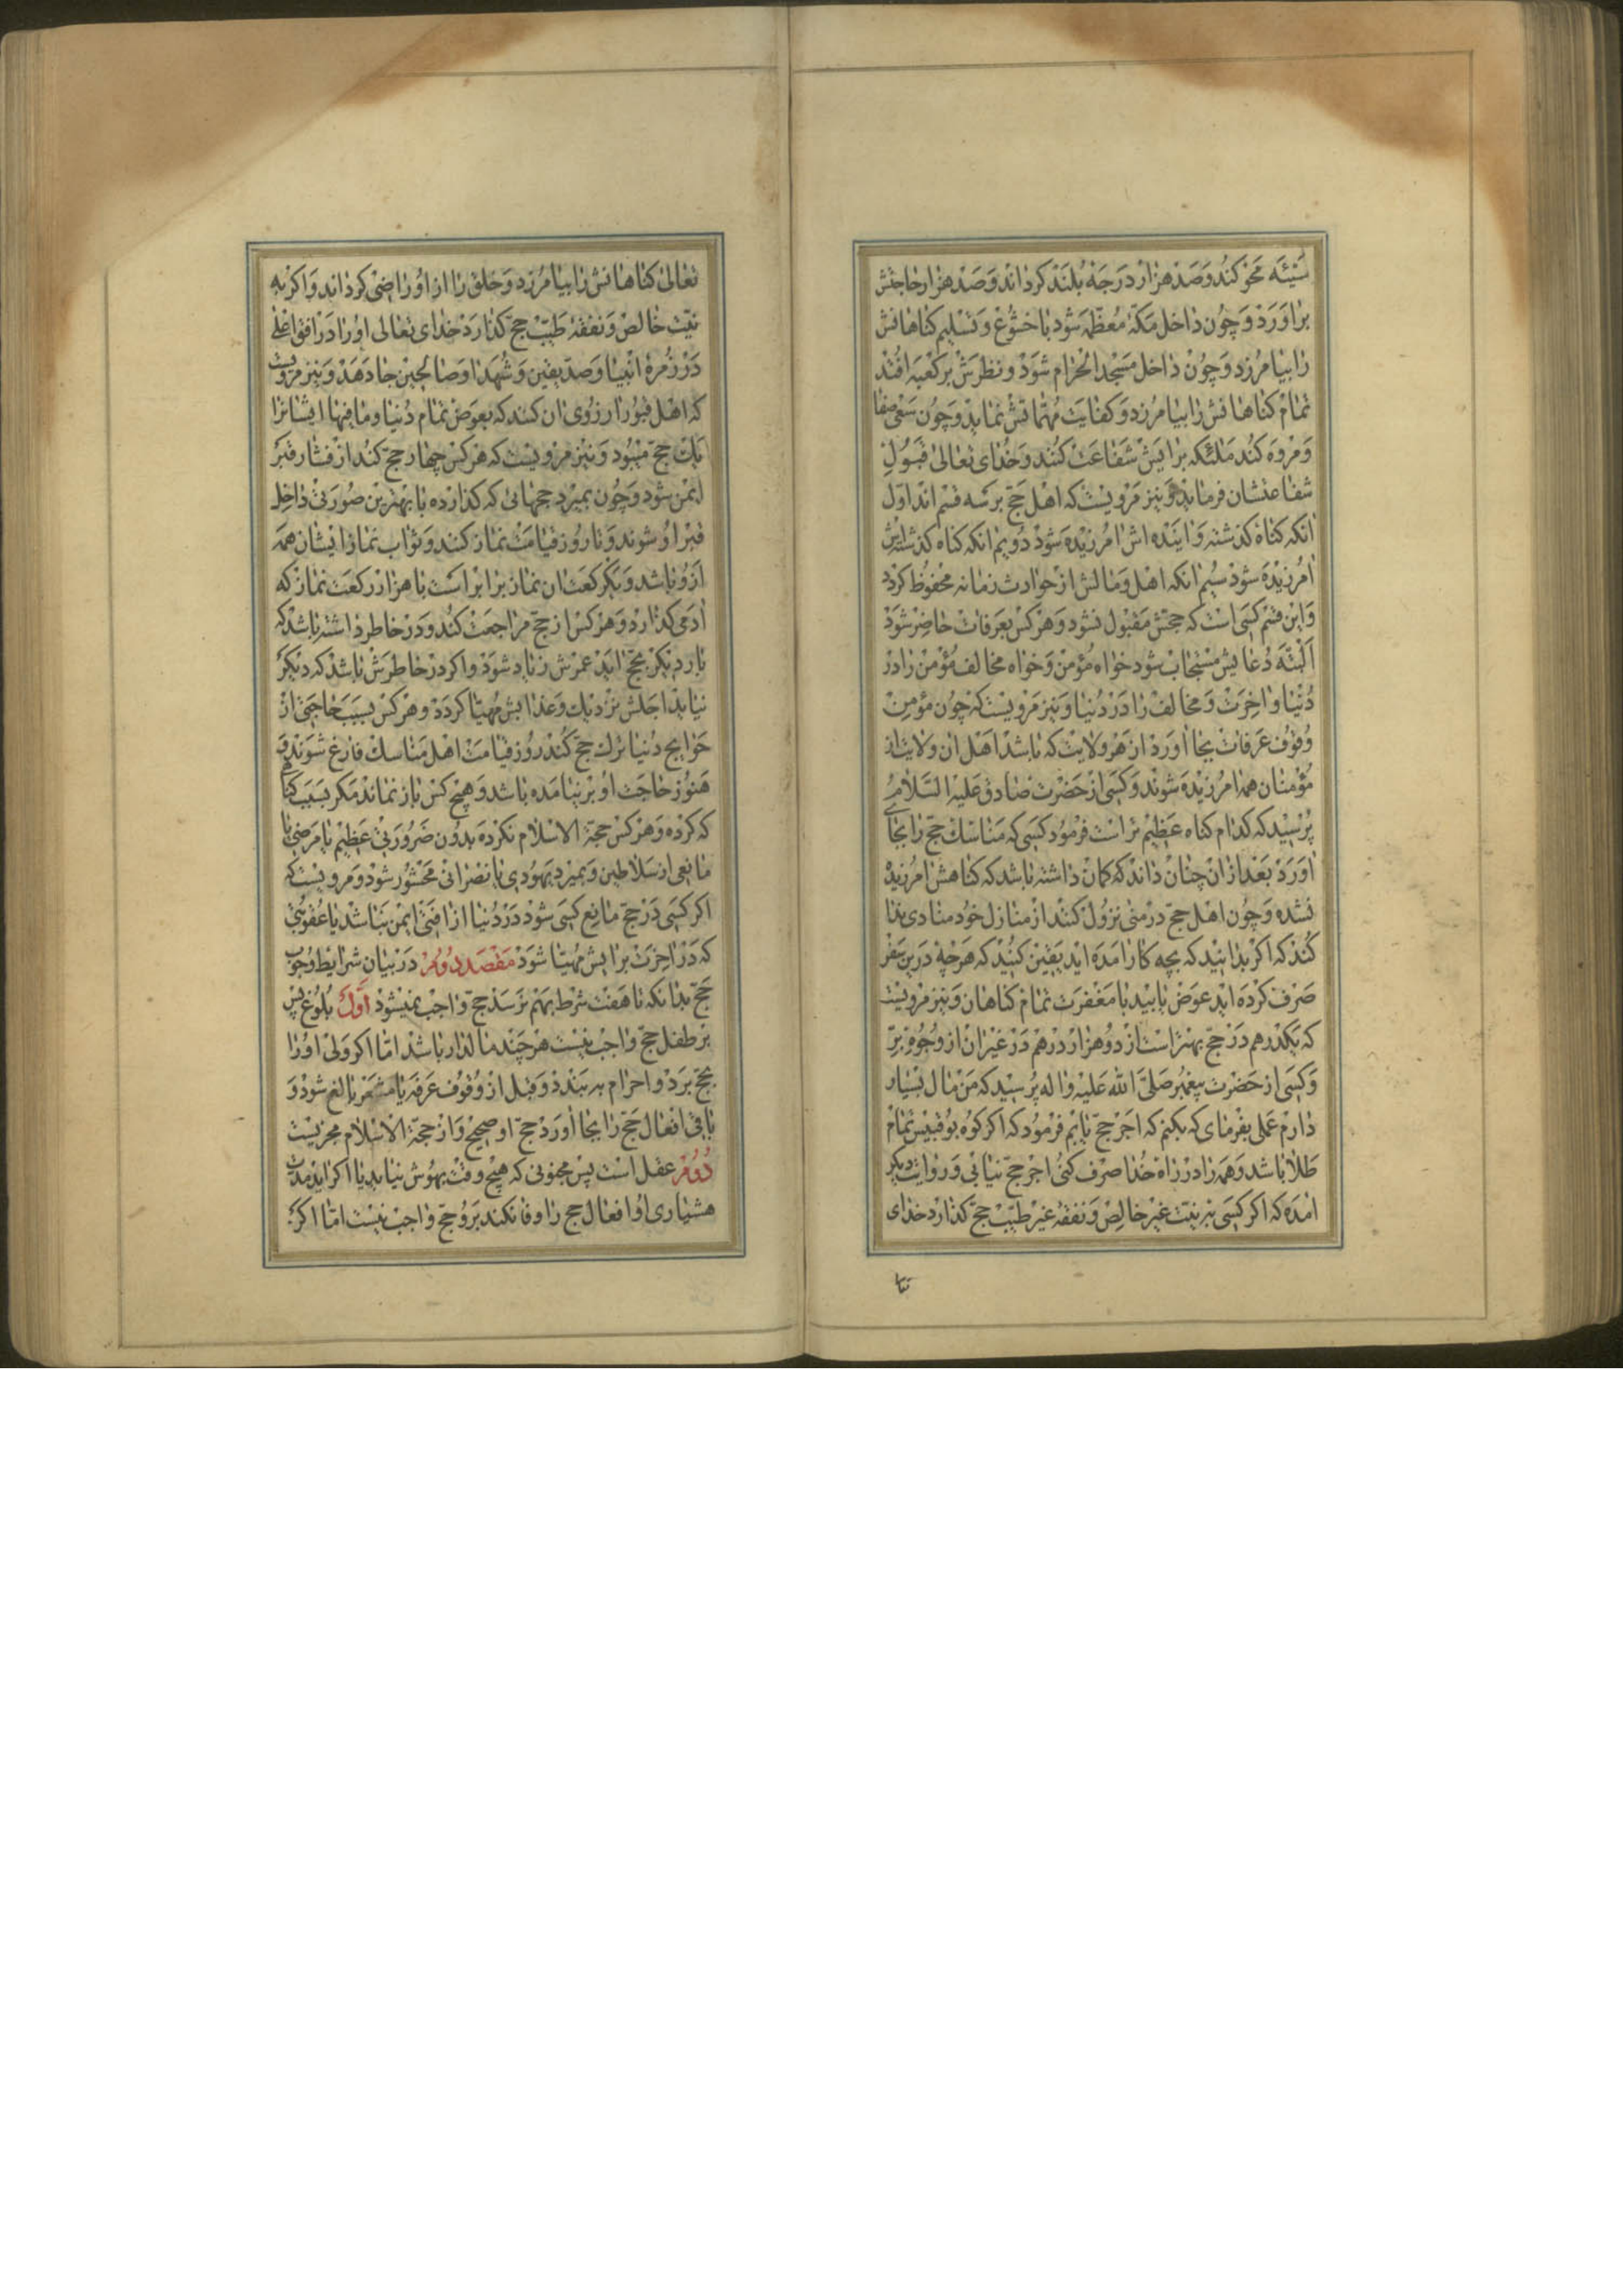 سیئه محو کند و صد هزار درجه بلند کرداند و صد هزار حاجتش
براورد و چون داخل مکّهٔ معظّمه شود با خشوع و تسلیم کناهانش
را بیامرزد و چون داخل مسجد الحرام شود و نظرش بر کعبه افتد
تمام کناهانش را بیامرزد و کفایت مهمّاتش نماید و چون سعی صفا
و مروه کند ملئکه برایش شفاعت کنند و خدای تعالی قبول
شفاعتشان فرماید و نیز مرویست که اهل حجّ بر سه قسم اند اوّل
انکه کناه کذشته و اینده اش امرزیده شود دویم انکه کناه کذشته اش
امرزیده شود سیم انکه اهل و مالش از حوادث زمانه محفوظ کردد
و این قسم کسی است که حجش مقبول نشود و هر کس بعرفات حاضر شود
البتّه دعایش مستجاب شود خواه مؤمن و خواه مخالف مؤمن را در
دنیا و اخرت و مخالف را در دنیا و نیز مرویست که چون مؤمن
وقوف عرفات بجا اورد از هر ولایت که باشد اهل ان ولایت از
مؤمنان همه امرزیده شوند و کسی از حضرت صادق علیه السّلام
پرسید که کدام کناه عظیم تر است فرمود کسی که مناسک حجّ را بجای
اورد بعد از ان چنان داند که کمان داشته باشد که کناهش امرزیده
نشده و چون اهل حجّ در منی نزول کنند از منازل خود منادی ندا
کند که اکر بدانید که بچه کار امده اید یقین کنید که هرچه درین سفر
صرف کرده اید عوض یابید با مغفرت تمام کناهان و نیز مرویست
که یکدرهم در حجّ بهتر است از دو هزار درهم در غیر ان از وجوه برّ
و کسی از حضرت پیغمبر صلّی الله علیه و اله پرسید که من مال بسیار
دارم عملی بفرمای که بکنم که اجر حجّ یابم فرمود که اکر کوه بوقبیس تمام
طلا باشد و همه را در راه خدا صرف کنی اجر حجّ نیابی و روایت دیکر
امده که اکر کسی به نیّت غیر خالص و نفقهٔ غیر طیّب حجّ کذارد خدای
تعالی کناهانش را بیامرزد و خلق را از او راضی کرداند و اکر به
نیّت خالص و نفقهٔ طیّب حجّ کذارد خدای تعالی او را در افق اعلی
در زمرهٔ انبیا و صدّیقین و شهدا و صالحین جا دهد و نیز مرویست
که اهل قبور ارزوی ان کنند که بعوض تمام دنیا و ما فیها ایشانرا
یک حجّ میبود و نیز مرویست که هر کس چهار حجّ کند از فشار قبر
ایمن شود و چون بمیرد حجهائی که کذارده با بهترین صورتی داخل
قبر او شوند و تا روز قیامت نماز کنند و ثواب نماز ایشان همه
از و باشد و یکرکعت ان نماز برابر است با هزار رکعت نماز که
ادمی کذارد و هر کس از حجّ مراجعت کند و در خاطر داشته باشد که
بار دیکر بحجّ اید عمرش زیاد شود و اکر در خاطرش باشد که دیکر
نیاید اجلش نزدیک و عذابش مهیّا کردد و هر کس بسبب حاجتی از
حوایج دنیا ترک حجّ کند روز قیامت اهل مناسک فارغ شوند و
هنوز حاجت او بر نیامده باشد و هیچ کس باز نماند مکر بسبب کناهی
که کرده و هر کس حجة الاسلام نکرده بدون ضرورتی عظیم یا مرضی یا
مانعی از سلاطین و بمیرد یهودی یا نصرانی محشور شود و مرویست که
اکر کسی در حجّ مانع کسی شود در دنیا از افتی ایمن نباشد با عقوبتی
که در اخرت برایش مهیّا شود مقصد دویم در بیان شرایط وجوب
حجّ بدانکه تا هفت شرط بهم نرسد حجّ واجب نمیشود اوّل بلوغ پس
بر طفل حجّ واجب نیست هر چند مالدار باشد امّا اکر ولی او را
بحجّ برد و احرام به بندد و قبل از وقوف عرفه یا مشعر بالغ شود و
باقی افعال حجّ را بجا اورد حجّ او صحیح و از حجّة الاسلام مجزیست
دویم عقل است پس مجنونی که هیچ وقت بهوش نیاید یا اکر اید مدت
هشیاری او افعال حج را وفا نکند برو حجّ واجب نیست امّا اکر